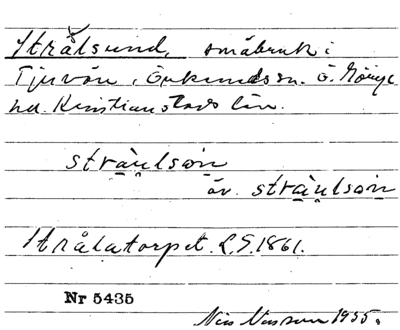 Strålsund, småbruk i
Tjuvön, Örkeneds sn. Ö. Göinge
hd. Kristianstads län.
stràu̯lsón
äv. stràu̯lsòn
Strålatorpet. L.S. 1861.
Nr 5435
Nils Nilsson 1935.